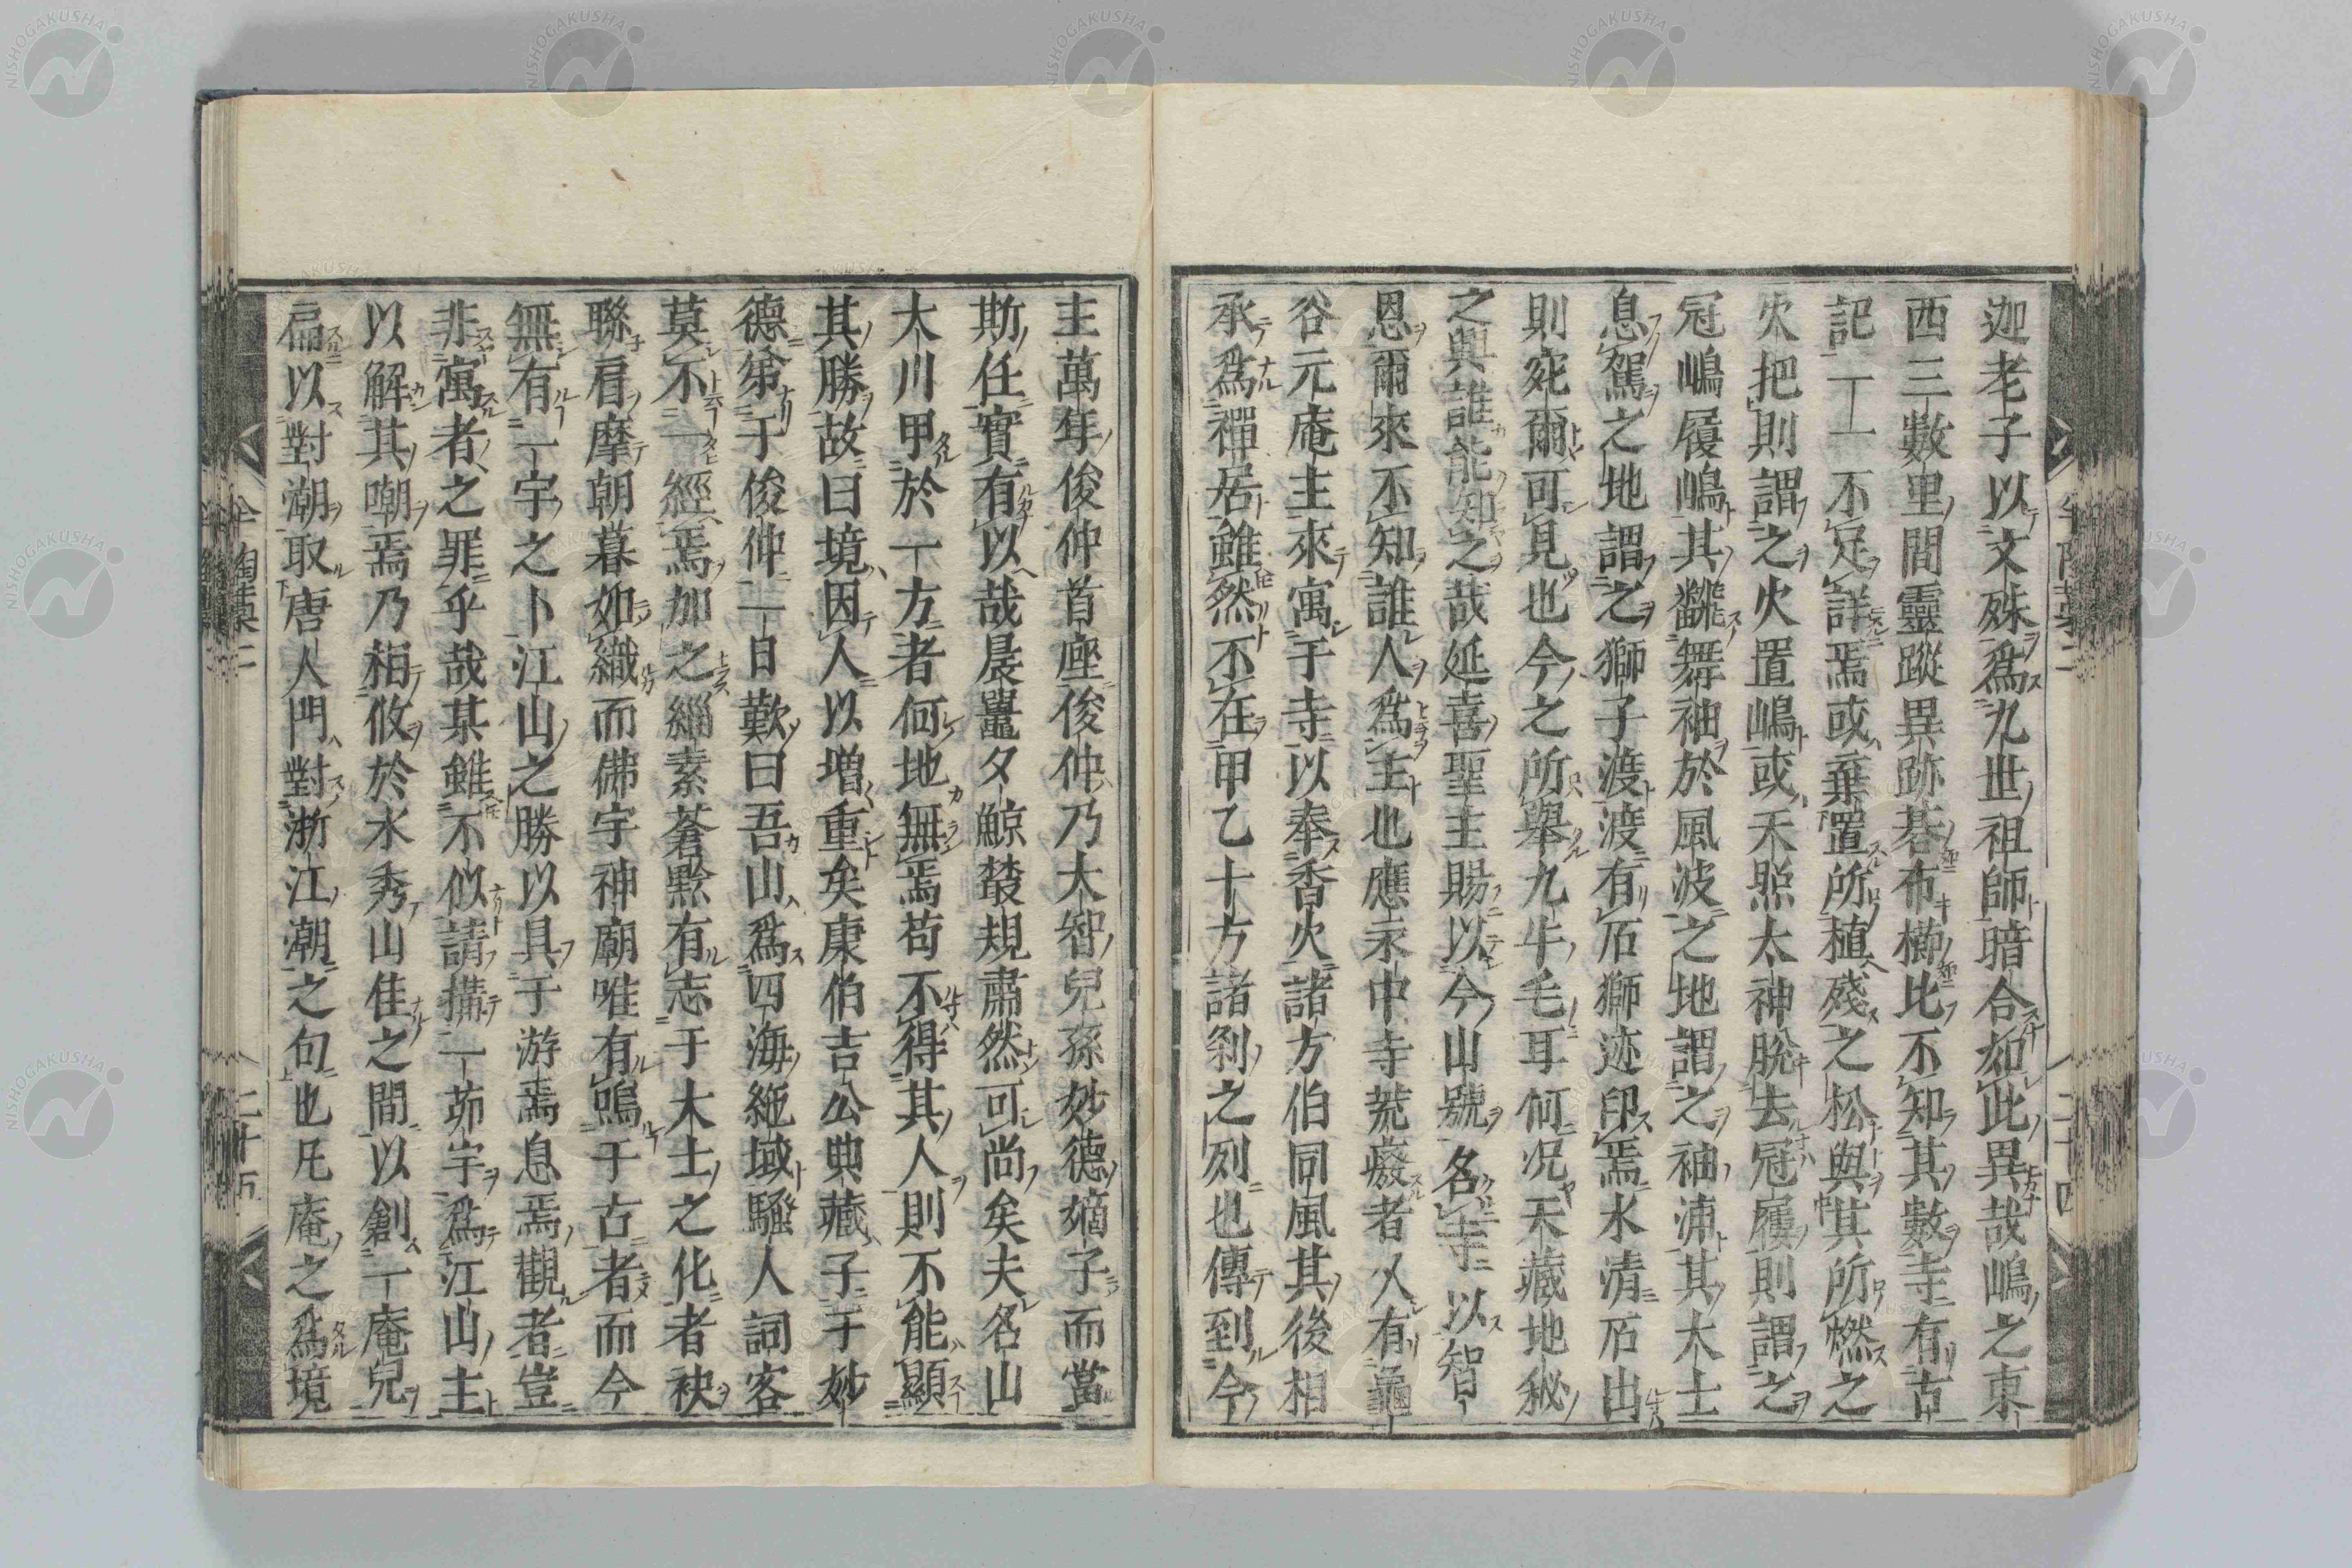 迦老子以文殊爲九世祖師暗合如此異哉嶋之東
西三數里間靈蹤異跡碁布櫛比不知其數寺有古
記一一不足詳焉或棄置所植殘之松與其所燃之
火把則謂之火置嶋或天照太神脫去冠履則謂之
冠嶋履嶋其飜舞袖於風波之地謂之袖浦其大士
息駕之地謂之獅子渡渡有石獅迹印焉水清石出
則宛爾可見也今之所舉九牛毛耳何況天藏地秘
之興誰能知之哉延喜聖主賜以今山號名寺以智
恩爾來不知誰人爲主也應永中寺荒癈者久有龜
谷元庵主來寓于寺以奉香火諸方伯同風其後相
承爲禪居雖然不在甲乙十方諸剎之列也傳到今
主萬年俊仲首座俊仲乃大智兒孫妙德嫡子而當
斯任實有以哉晨鼉夕鯨發規肅然可尚矣夫名山
大川甲於一方者何地無焉苟不得其人則不能顯
其勝故曰境因人以增重矣康伯吉公典藏子于妙
德弟于俊仲一日歎曰吾山爲四海絶域騷人詞客
莫不一經焉加之緇素蒼黔有志于大士之化者袂
聯肩摩朝暮如織而佛宇神廟唯有鳴于古者而今
無有一宇之卜江山之勝以具于游焉息焉觀者豈
非寓者之罪乎哉某雖不似請搆一茆宇爲江山主
以解其嘲焉乃相攸於水秀山佳之間以創一庵兒
扁以對潮取唐人門對浙江潮之句也凡庵之爲境
二十五